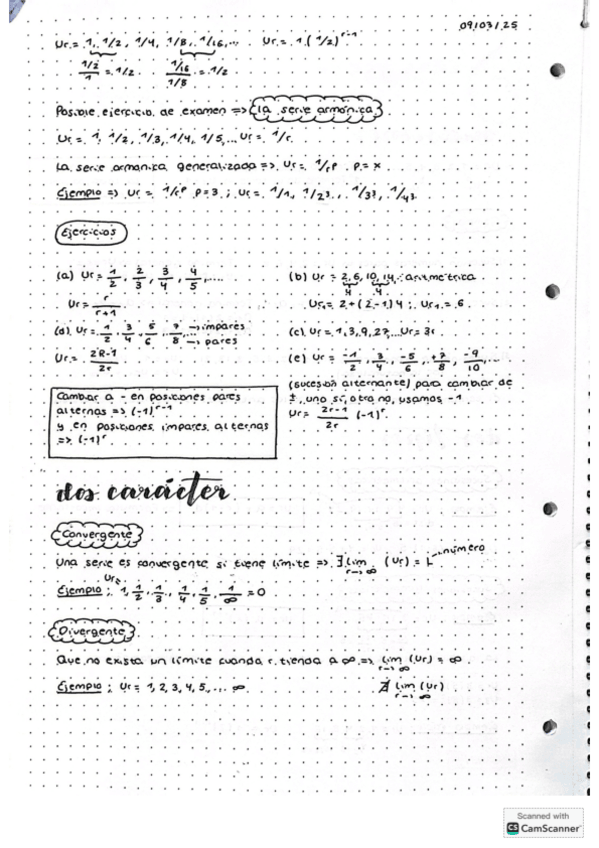 09/03/25
Ur = 1, 1/2, 1/4, 1/8, 1/16,... Ur = 1·(1/2)^r-1
1/2 / 1 = 1/2 1/16 / 1/8 = 1/2
Posible ejercicio de examen => la serie armónica
Ur = 1, 1/2, 1/3, 1/4, 1/5,... Ur = 1/r
La serie armónica generalizada => Ur = 1/r^p p = x
Ejemplo => Ur = 1/r^p p=3 ; Ur = 1/1, 1/2³, 1/3³, 1/4³
Ejercicios
(a) Ur = 1/2, 2/3, 3/4, 4/5,....
Ur = r/r+1
(b) Ur = 2, 6, 10, 14, : aritmétrica
4 4
Ur = 2 + (2-1) 4 ; Ur = 6
(d) Ur = 1/2, 3/4, 5/6, 7/8,... → impares → pares
Ur = 2R-1/2r
(c) Ur = 1, 3, 9, 27,... Ur = 3r
(e) Ur = -1/2, 3/4, -5/6, +7/8, -9/10,...
(sucesión alternante) para cambiar de
±, uno sí, otro no, usamos -1
Ur = 2r-1/2r (-1)^r
Cambiar a - en posiciones pares
alternas => (-1)^r-1
y en posiciones impares alternas
=> (-1)^r
dos carácter
Convergente
Una serie es convergente si tiene límite => ∃ lim r→∞ (Ur) = L → número
Ejemplo : Ur = 1, 1/2, 1/3, 1/4, 1/5, 1/∞ = 0
Divergente
Que no exista un límite cuando r tienda a ∞ => lim r→∞ (Ur) = ∞
Ejemplo : Ur = 1, 2, 3, 4, 5,... ∞
∄ lim r→∞ (Ur)
Scanned with
CS CamScanner